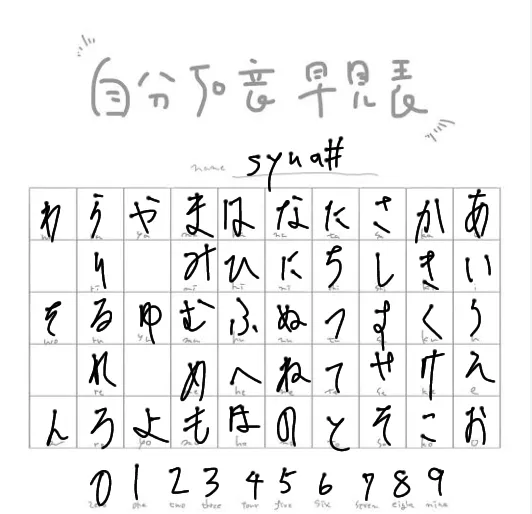 自分50音早見表
name syua#
わ ら や ま は な た さ か あ
り み ひ に ち し き い
を る ゆ む ふ ぬ つ す く う
れ め へ ね て せ け え
ん ろ よ も ほ の と そ こ お
0 1 2 3 4 5 6 7 8 9
zero one two three four five six seven eight nine